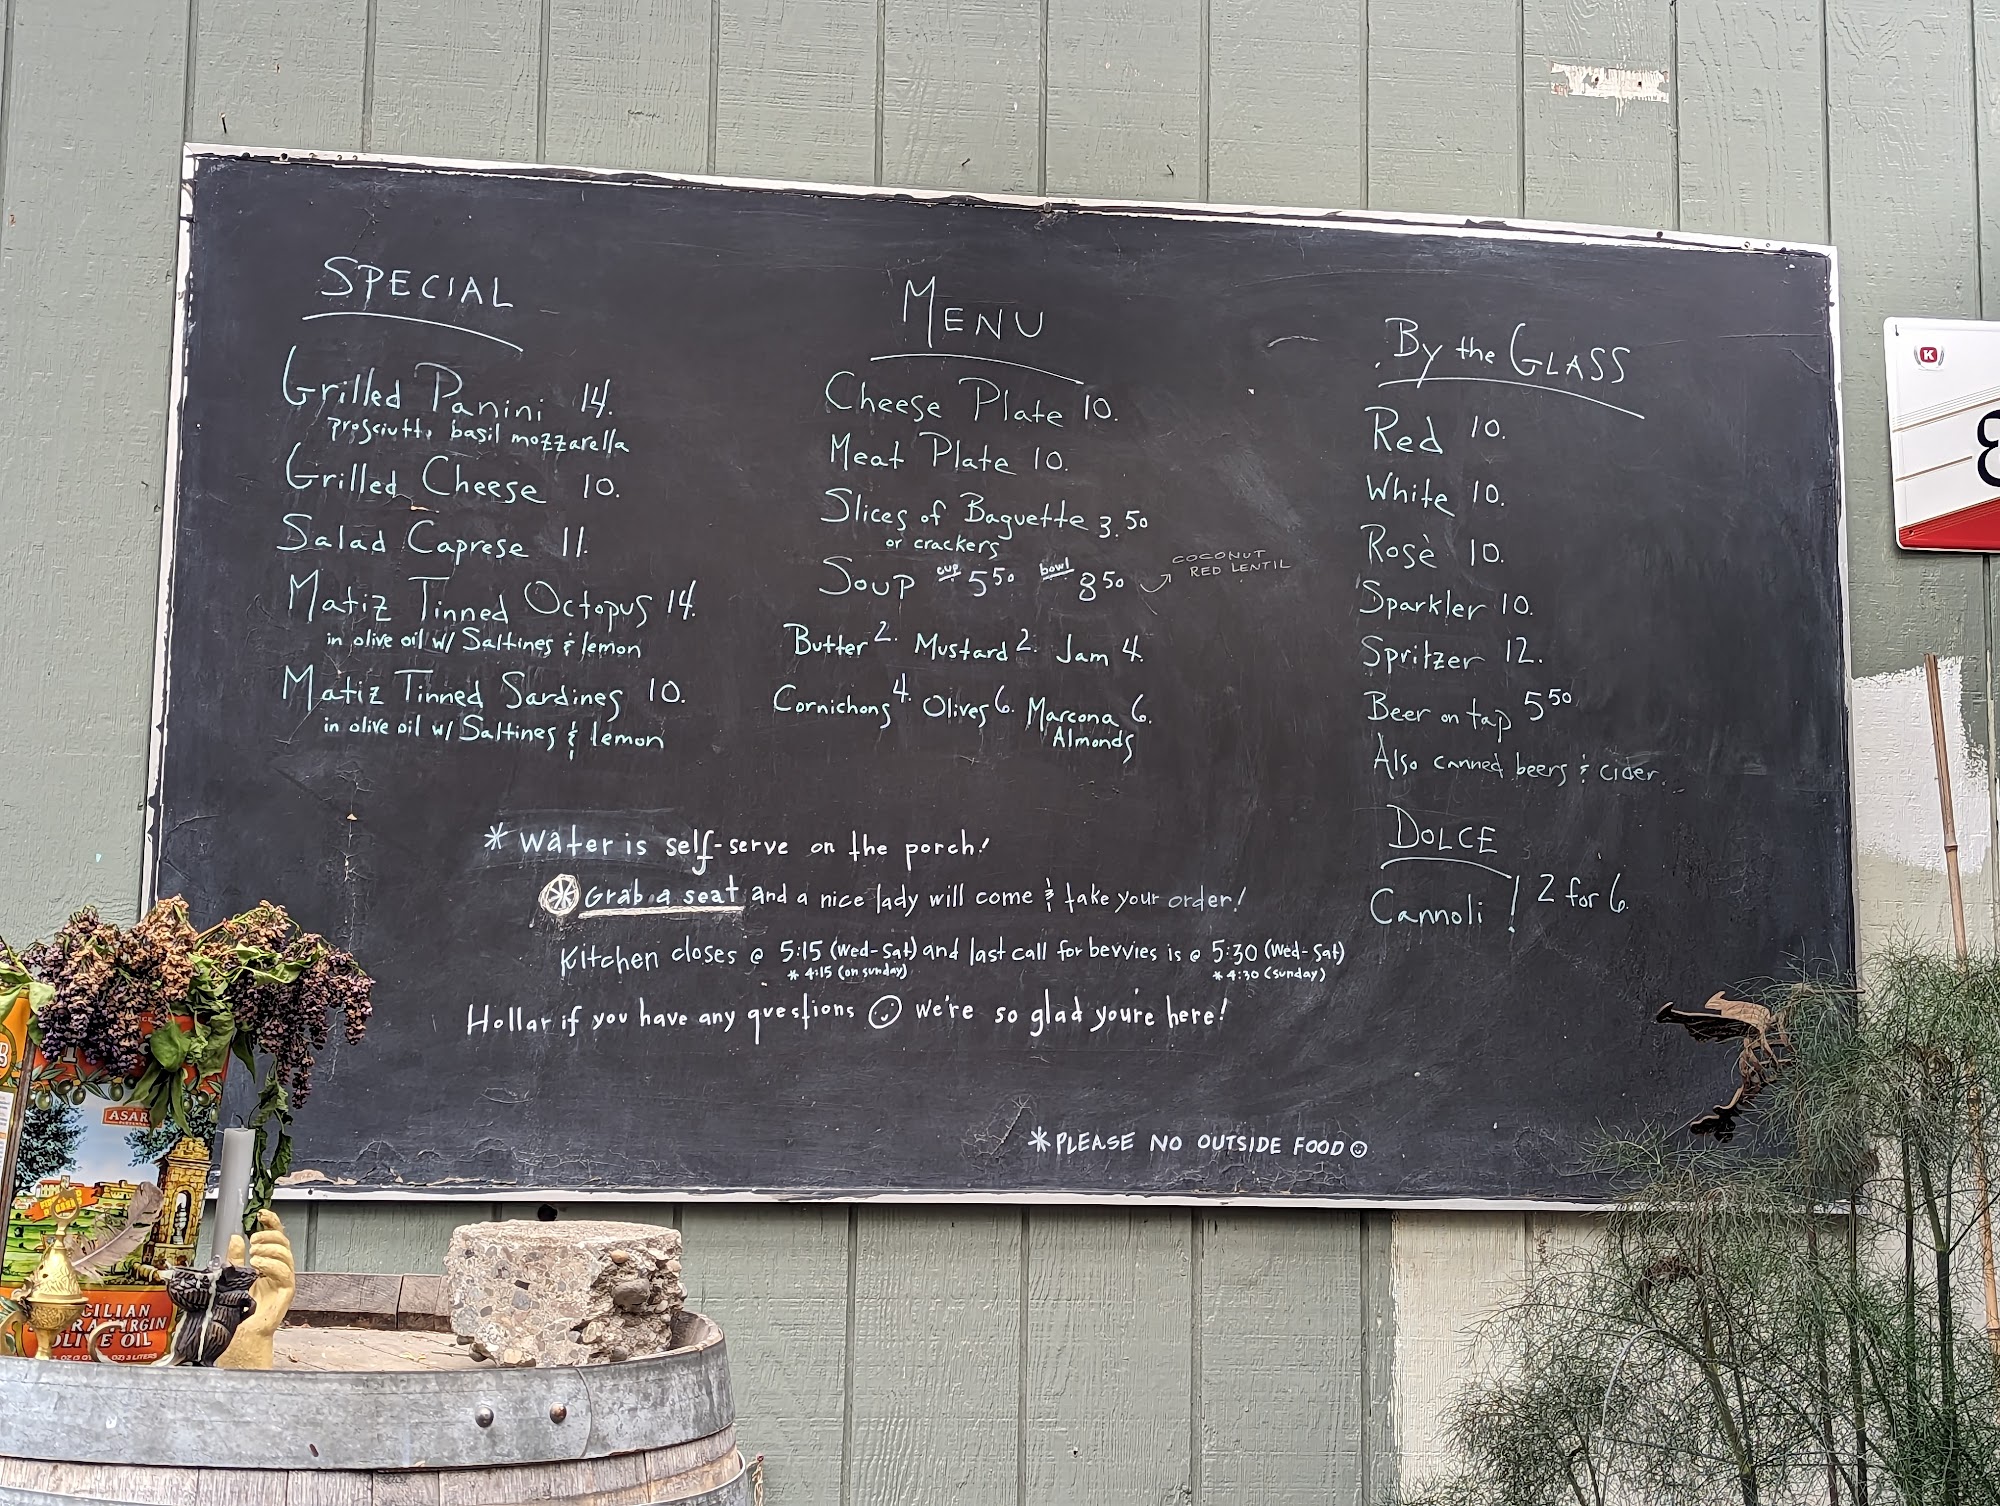 SPECIAL
Grilled Panini 14.
prosciutto basil mozzarella
Grilled Cheese 10.
Salad Caprese 11.
Matiz Tinned Octopus 14.
in olive oil w/ Saltines & lemon
Matiz Tinned Sardines 10.
in olive oil w/ Saltines & lemon
MENU
Cheese Plate 10.
Meat Plate 10.
Slices of Baguette 3.50
or crackers
Soup cup 5.50 bowl 8.50
COCONUT
RED LENTIL
Butter 2. Mustard 2. Jam 4.
Cornichons 4. Olives 6. Marcona 6.
Almonds
By the GLASS
Red 10.
White 10.
Rosè 10.
Sparkler 10.
Spritzer 12.
Beer on tap 5.50
Also canned beers & cider.
DOLCE
Cannoli! 2 for 6.
* Water is self-serve on the porch!
* Grab a seat and a nice lady will come & take your order!
Kitchen closes @ 5:15 (Wed-Sat) and last call for bevvies is @ 5:30 (Wed-Sat)
* 4:15 (on sunday) * 4:30 (sunday)
Hollar if you have any questions ☺ we're so glad you're here!
* PLEASE NO OUTSIDE FOOD ☺
K
ASAR
CILIAN
RA VIRGIN
OLIVE OIL